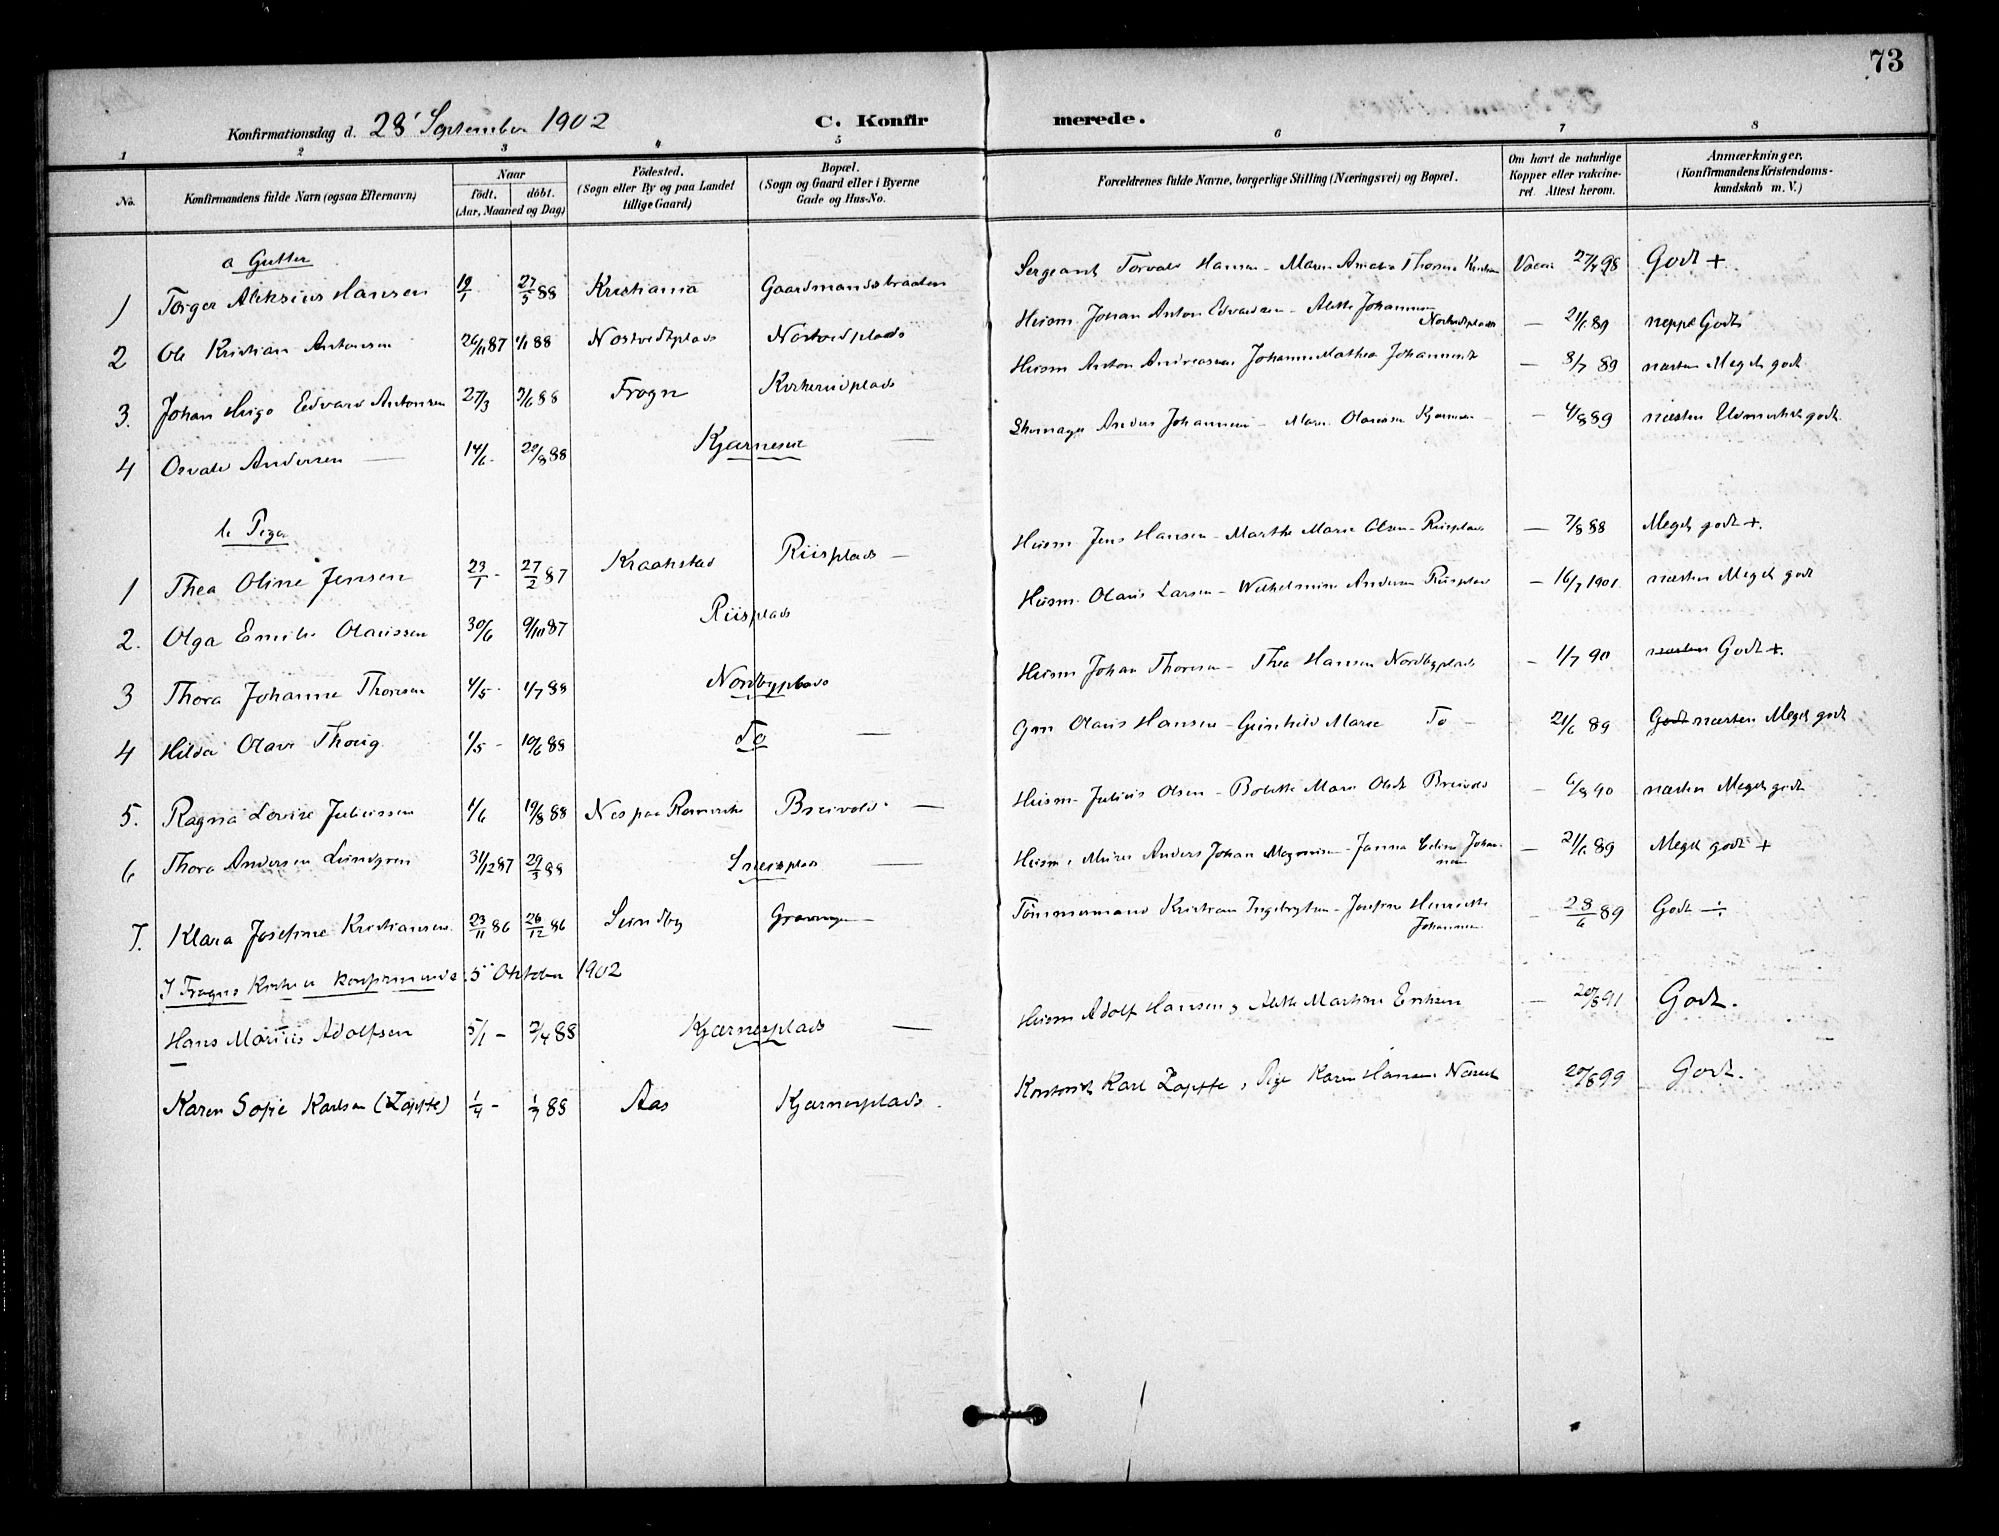 73
Konfirmationsdag d. 28' September 1902
C. Konfirmerede.
1 2 3 4 5 6 7 8
No. Konfirmandens fulde Navn (ogsaa Efternavn) Naar født. døbt. (Aar, Maaned og Dag) Födested. (Sogn eller By og paa Landet tillige Gaard) Bopæl. (Sogn og Gaard eller i Byerne Gade og Hus-No. Forældrenes fulde Navne, borgerlige Stilling (Næringsvei) og Bopæl. Om havt de naturlige Kopper eller vakcineret. Attest herom. Anmærkninger. (Konfirmandens Kristendomskundskab m. V.)
a Gutter
1 Torger Aleksius Hansen 19/1 27/5 88 Kristiania Gaardmandsbraaten Sergeant Torvald Hansen - Maren Amalia Thorsen Vaccin 27/7 98 Godt +
2 Ole Kristian Antonsen 26/11 87 1/1 88 Nostvedtplads Nostvedplads Husm. Johan Anton Edvardsen - Alette Johannesen Nostvedtplads — 21/6 89 neppe Godt
3. Johan Hugo Edvard Antonsen 27/3 3/6 88 Frogn Kirkerudplads Husm Anton Andreassen Johanne Mathea Johannesd — 8/7 89 næsten Meget godt
4 Osvald Andersen — 14/6 - 20/8 88 Kjærnesen — Skomager Anders Johannesen - Maren Olaussen Kjærnesen — 4/8 89 næsten Udmerket godt.
b Piger
1 Thea Oline Jensen 23/1 - 27/2 87 Kraakstad Riisplads — Husm Jens Hansen - Marthe Marie Olsen - Riisplads — 7/8 88 Meget godt +.
2. Olga Emilie Olaussen 30/6 9/10 87 Riisplads Husm. Olaus Larsen - Wilhelmine Andersen Riisplads — 16/7 1901. næsten Meget godt
3 Thora Johanne Thoresen 4/5 - 1/7 88 Nordbyplads Husm Johan Thoresen - Thea Hansen Nordbyplads — 1/7 90 næsten Godt +.
4 Hilda Olava Thorig 1/5 - 10/6 88 To — Gm Olaus Hansen - Gunhild Marie To — 21/6 89 Godt næsten Meget godt
5. Ragna Lovise Juliussen 1/6 19/8 88 Nes paa Romerike Breivold — Husm - Julius Olsen - Bolette Marie Olsdt Breivold — 6/8 90 næsten Meget godt
6 Thora Andersen Lundgren 31/12 87 29/3 88 Sneisplads — Husm, Murer Anders Johan Magnusen - Janna Celine Johannesen — 21/6 89 Meget godt +
7. Klara Josefine Kristiansen. 23/11 86 26/12 86 Sundby — Tömmermand Kristian Ingebrigtsen - Josefine Henriette Johannesen. — 28/6 89 Godt ÷
I Frogns Kirke er konfirmerede 5' Oktober 1902
Hans Marius Adolfsen 5/1 - 2/4 88 Kjærnesplads — Husm Adolf Hansen og Alette Martine Eriksen — 20/8 91 Godt.
Karen Sofie Karlsen (Zapffe) 1/4 - 1/7 88 Aas Kjærnesplads. Karl Zapffe, Pige Karen Hansen 20/8 99 Godt.